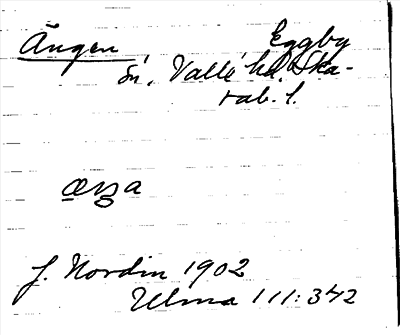 Ängen Eggby
sn, Valle hd. Ska-
rab. l.
æŋa
J. Nordin 1902
Ulma 111:342